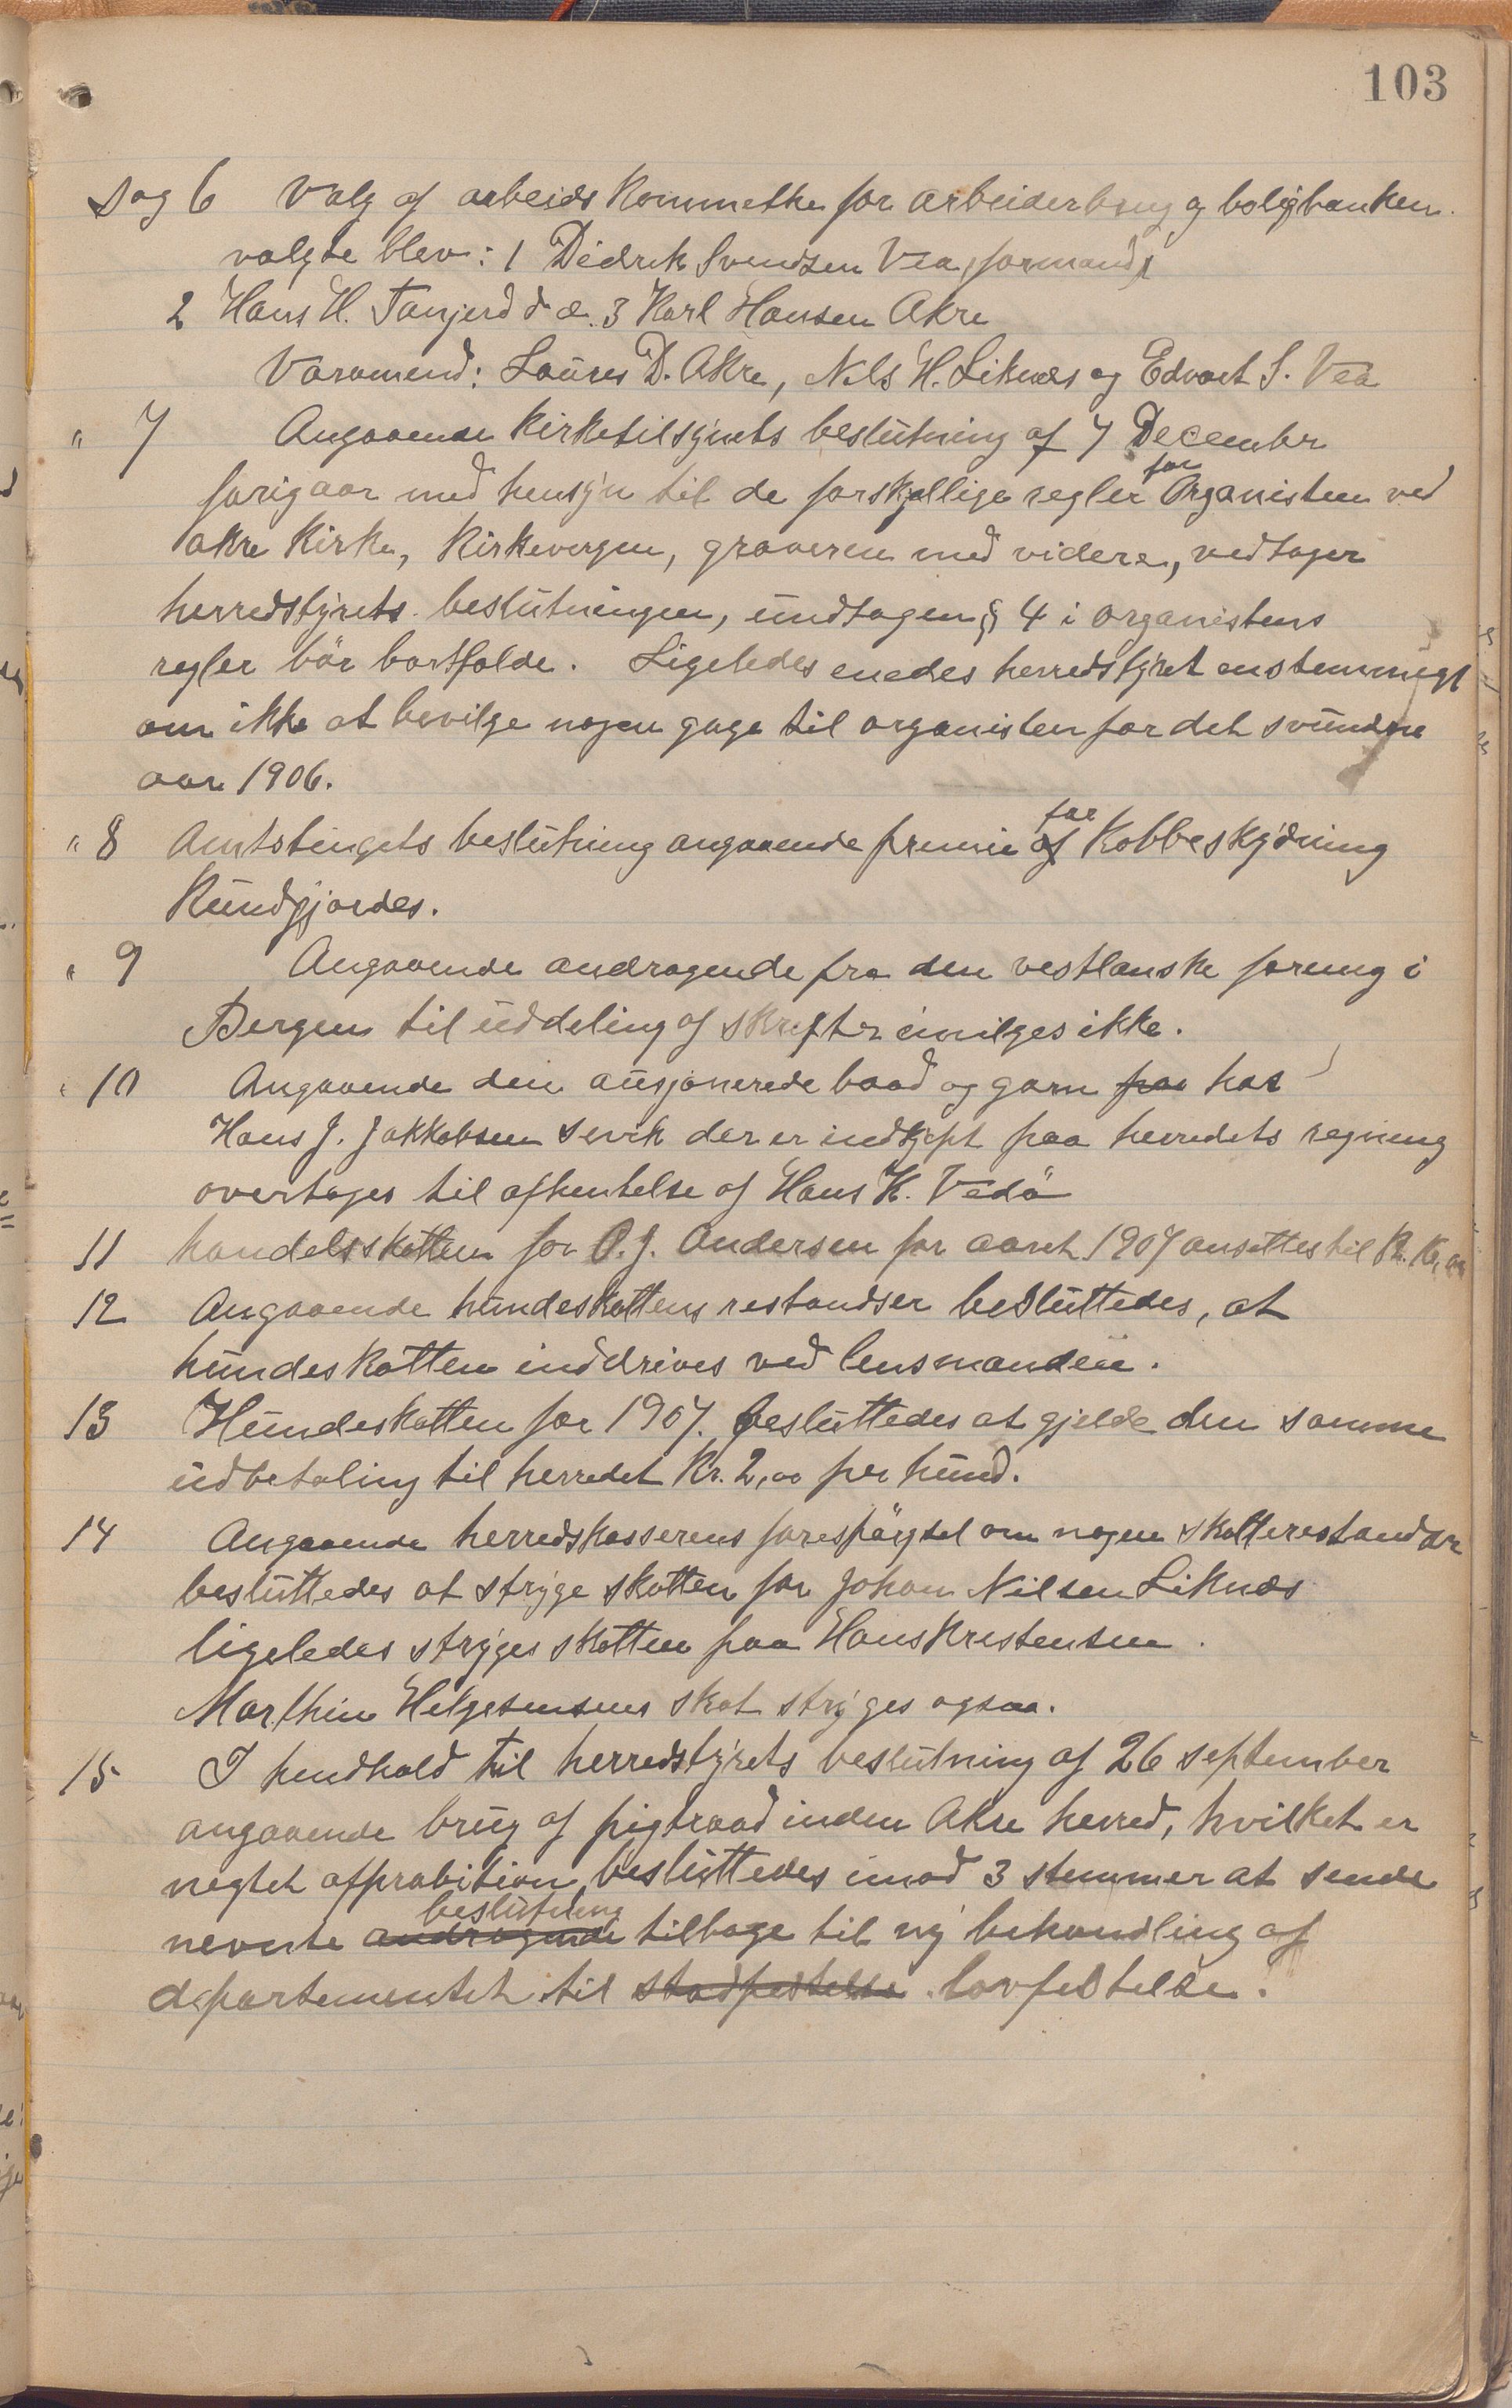 103
Sag 6 Valg af arbeidskommetke for arbeiderbrug og boligbanken.
valgte blev: 1 Didrik Svendsen Vea, formand,
2 Hans H. Tanjerd d. æ. 3 Karl Hansen Akre
Varamend: Laures D. Akre, Nils H. Liknes og Edvart S. Vea
" 7 Angaaende kirketilsynets beslutning af 7 December
forigaar med hensyn til de forskjellige regler for Organisten ved
akre Kirke, Kirkevergen, graveren med videre, vedtager
herredstyrets beslutningen, undtagen § 4 i organistens
regler bör bortfalde. Ligeledes enedes herredstyret enstemmigt
om ikke at bevilge nogen gage til organisten for det svundne
aar 1906.
" 8 Amtstingets beslutning angaaende premie af for Kobbeskydning
Kundgjordes.
" 9 Angaaende andragende fra den vestlanske forening i
Bergen til uddeling af skrefter invilges ikke.
" 10 Angaaende den ausjonerede baad og garn fra hos
Hans J. Jakkobsen Sevik der er indkjept paa herredets regning
overtages til afhentelse af Hans K. Vedö
11 handelsskatten for O. J. Andersen for aaret 1907 ansettes til Kr. 16,00
12 Angaaende hundeskattens restandser besluttedes, at
hundeskatten inddrives ved lensmanden.
13 Hundeskatten for 1907. besluttedes at gjelde den samme
udbetaling til herredet Kr. 2,00 per hund.
14 Angaaende herredskasserens forespörgsel om nogen skatterestandser
besluttedes at stryge skatten for Johan Nilsen Liknæs
ligeledes stryges skatten paa Hans Kristensen.
Marthin Helgesensens skat stryges ogsaa.
15 I hendhold til herredstyrets beslutning af 26 september
angaaende brug af pigtraad inden Akre herred, hvilket er
negtet approbition, besluttedes imod 3 stemmer at sende
nevnte andragende beslutning tilbage til ny behandling af
departementet til stadfestelse lovfestelse.